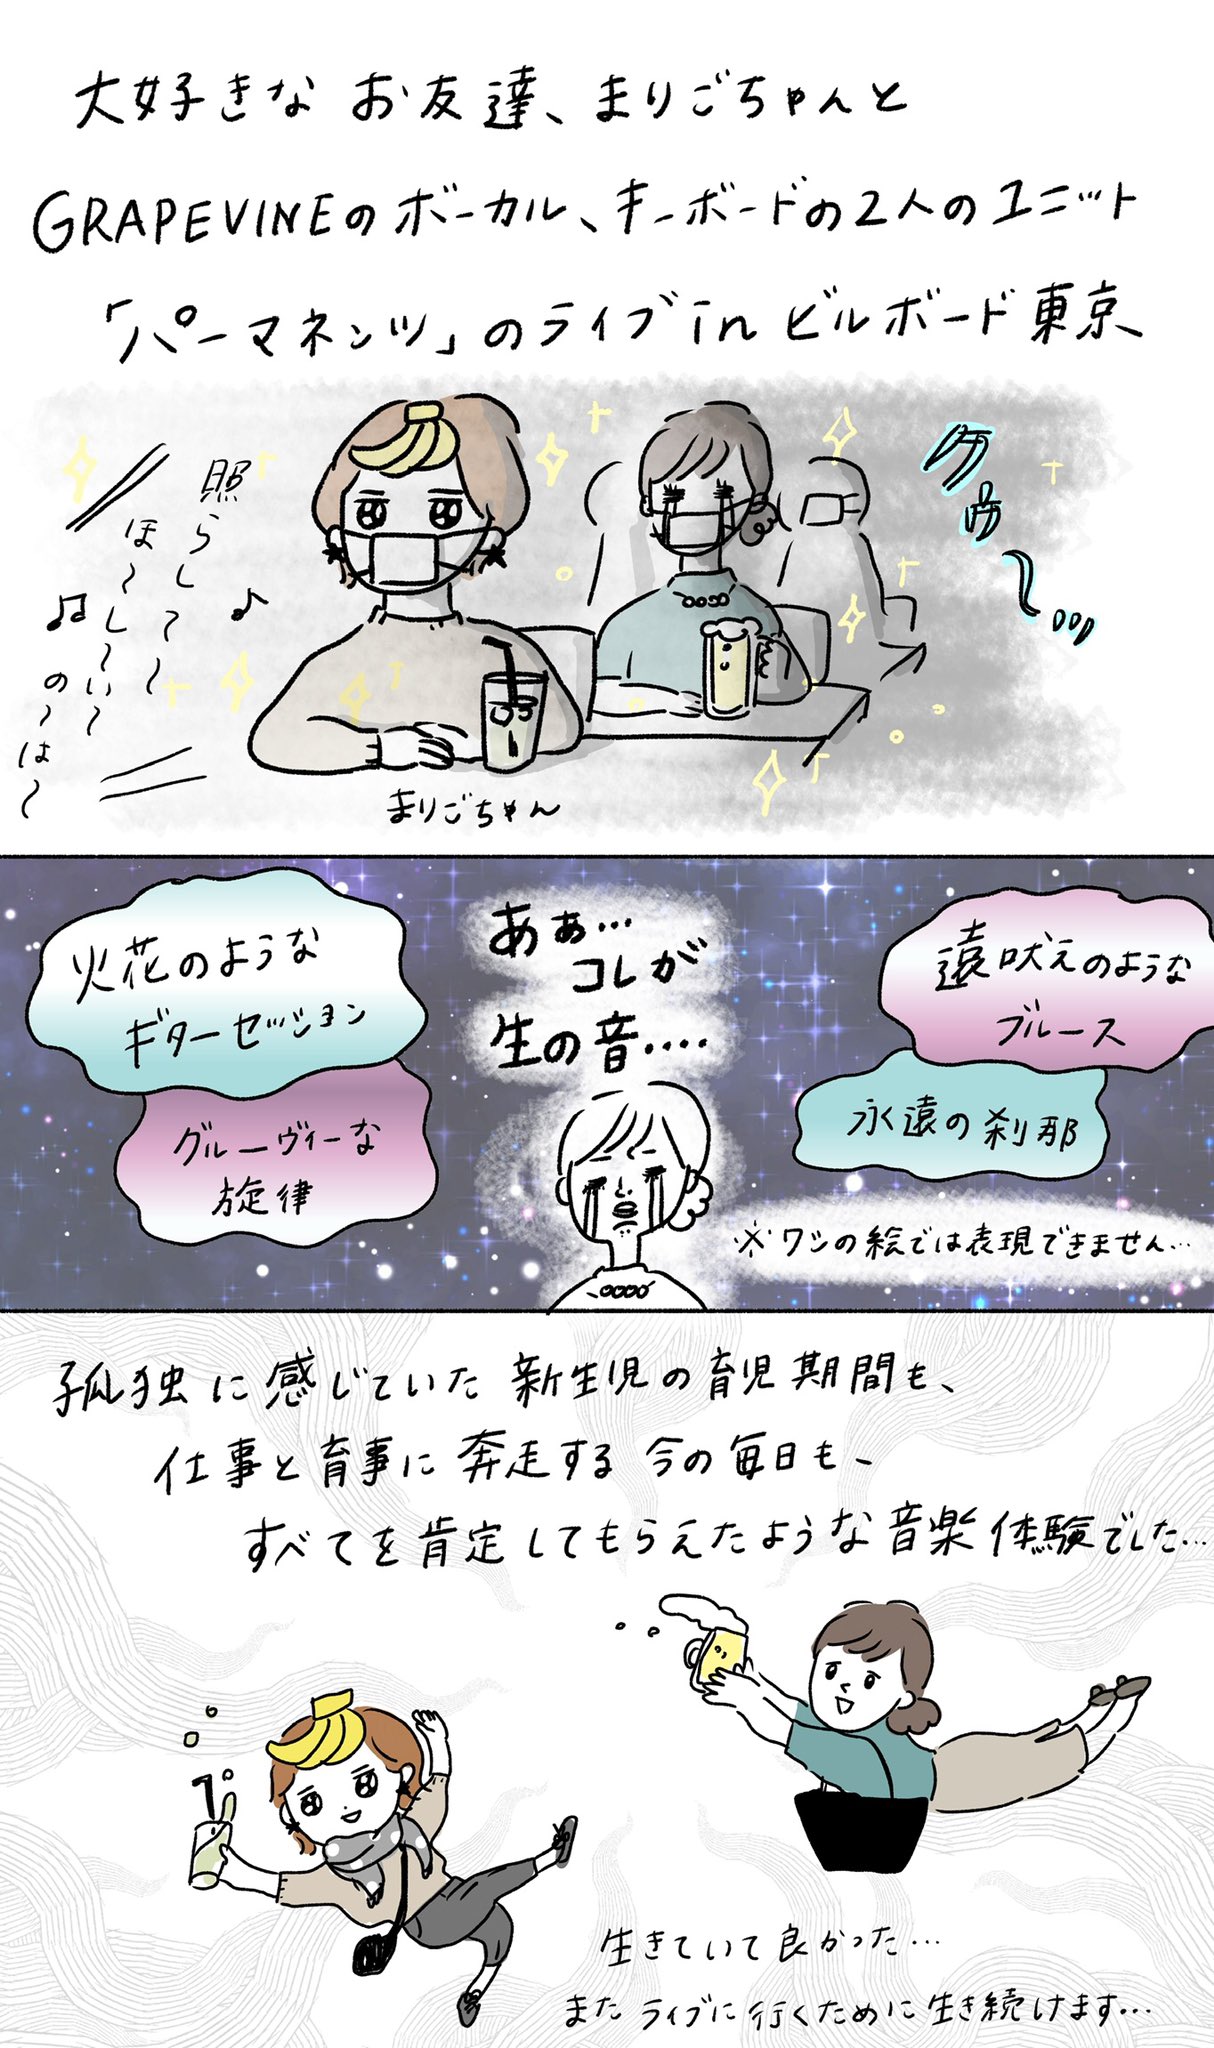 大好きな お友達、まりごちゃんと
GRAPEVINEのボーカル、キーボードの2人のユニット
「パーマネンツ」のライブinビルボード東京、
照らして〜
ほ〜し〜い〜
の〜は〜
まりごちゃん
あぁ…
コレが
生の音‥‥
火花のような
ギターセッション
グルーヴィーな
旋律
遠吠えのような
ブルース
永遠の刹那
※ワシの絵では表現できません…
孤独に感じていた新生児の育児期間も、
仕事と育事に奔走する今の毎日も、
すべてを肯定してもらえたような音楽体験でした…
生きていて良かった…
またライブに行くために生き続けます…